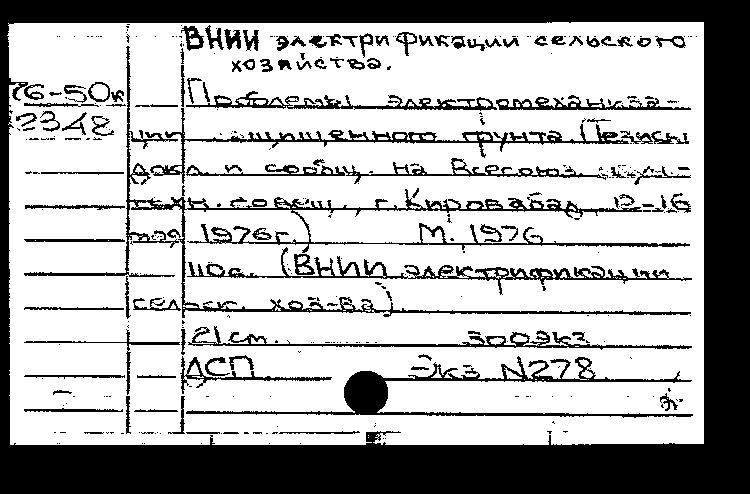 ВНИИ электрификации сельского
хозяйства.
76-50к
2348
Проблемы электромеханиза-
ции защищенного грунта. (Тезисы
докл. и сообщ. на Всесоюз. научн.-
техн. совещ., г. Кировабад, 12-16
мая 1976г.) М., 1976
110с. (ВНИИ электрификации
сельск. хоз-ва).
21см. 300экз
ДСП Экз N278